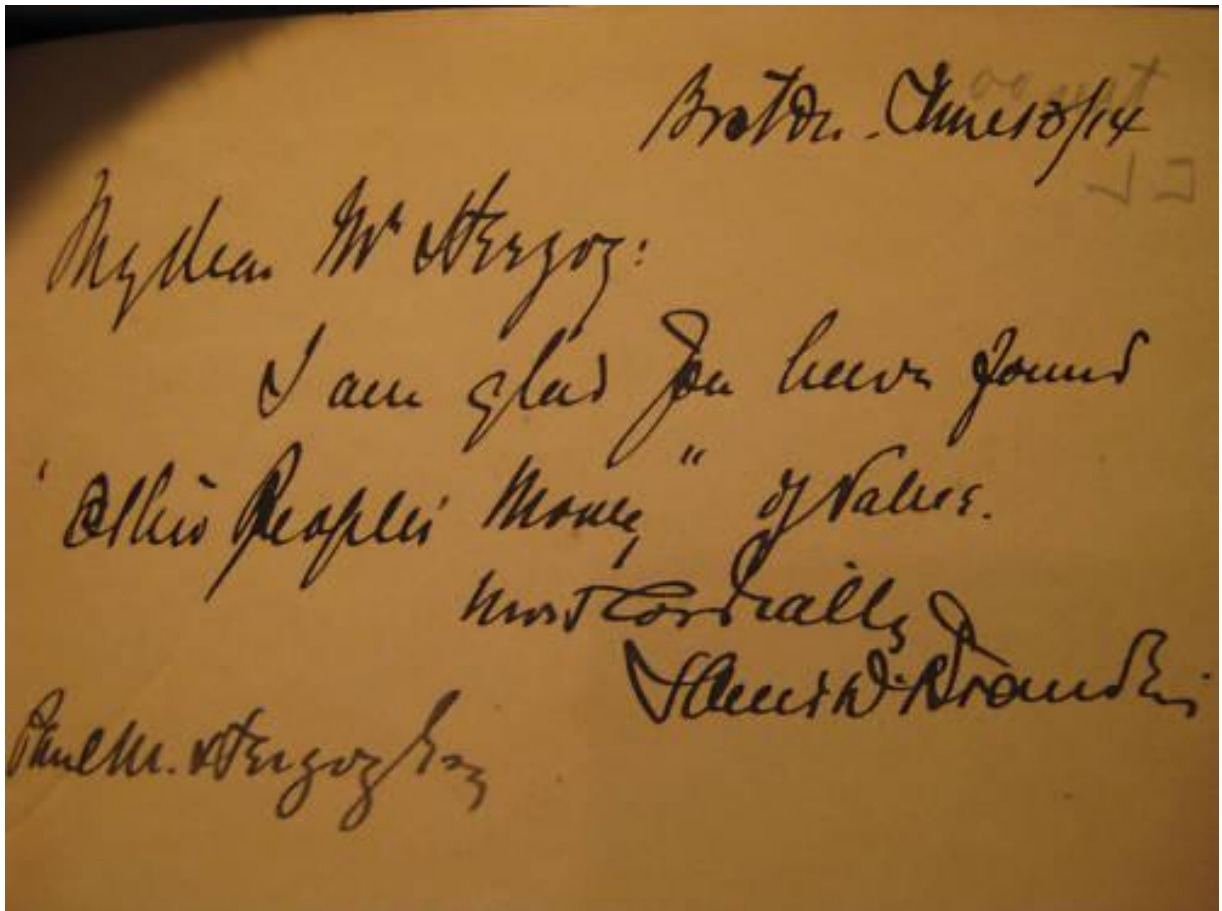 Boston. June 13/14
My dear Mr Herzog:
I am glad you have found
"Other People's Money" of value.
Most Cordially
Louis D. Brandeis
Paul M. Herzog Esq